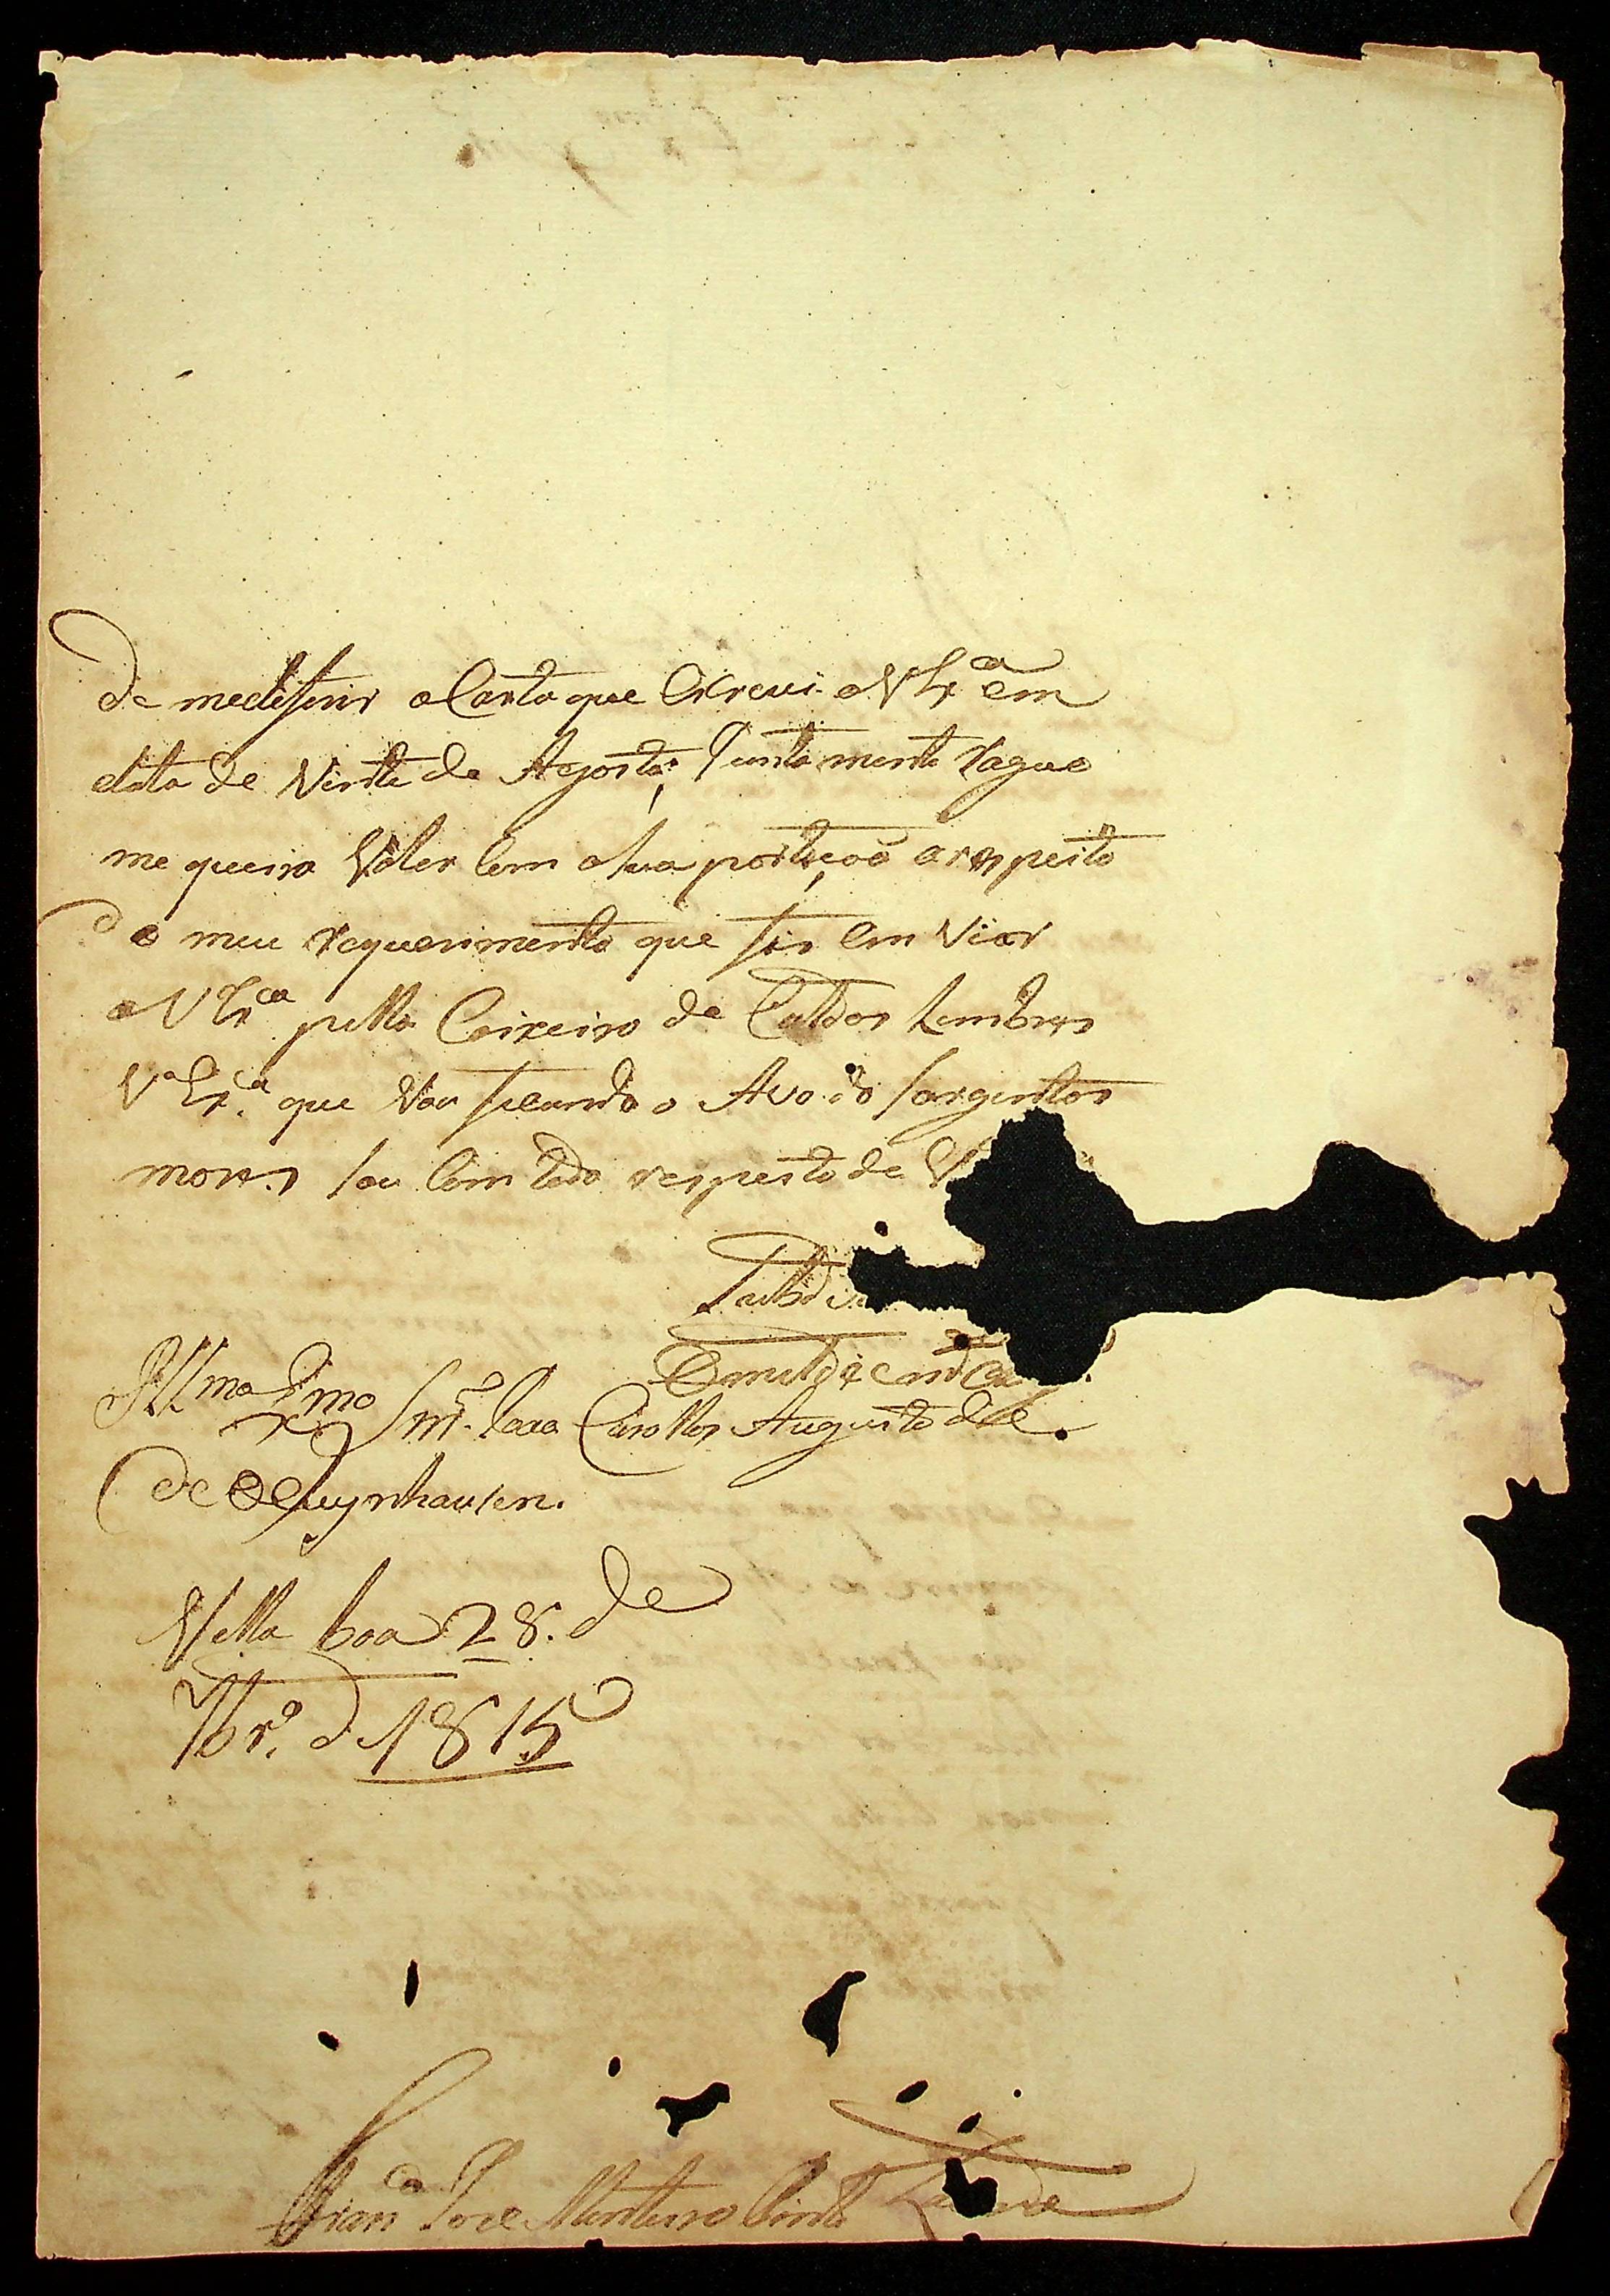 de mediferir a Carta que Escrevi a V Exca em
data de Vinte de Agosto, Junta mente Rague
me queira Valer Com a sua porteçaõ a respeito
do meu requerimento que fis em Viar
a V Exca pello Caixeiro de Caldos Lembres
V Exca. que Vou ficando o Avo do sargentos
mores sou Com todo respeito de V
Subdi
Omilde e
Illmo Exmo Snr. Joaõ Carollos Augusto de
de Oeynhausen.
Villa boa 28. de
7brº. d 1815
Franco Jose Monteiro Pinto